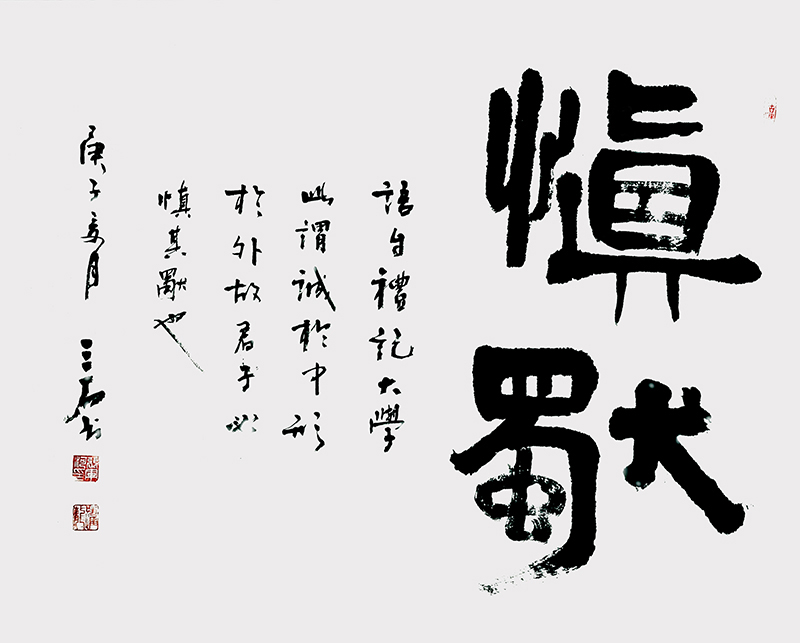 慎獨
語自禮記大學
此謂誠於中形
於外故君子必
慎其獨也
庚子夏月